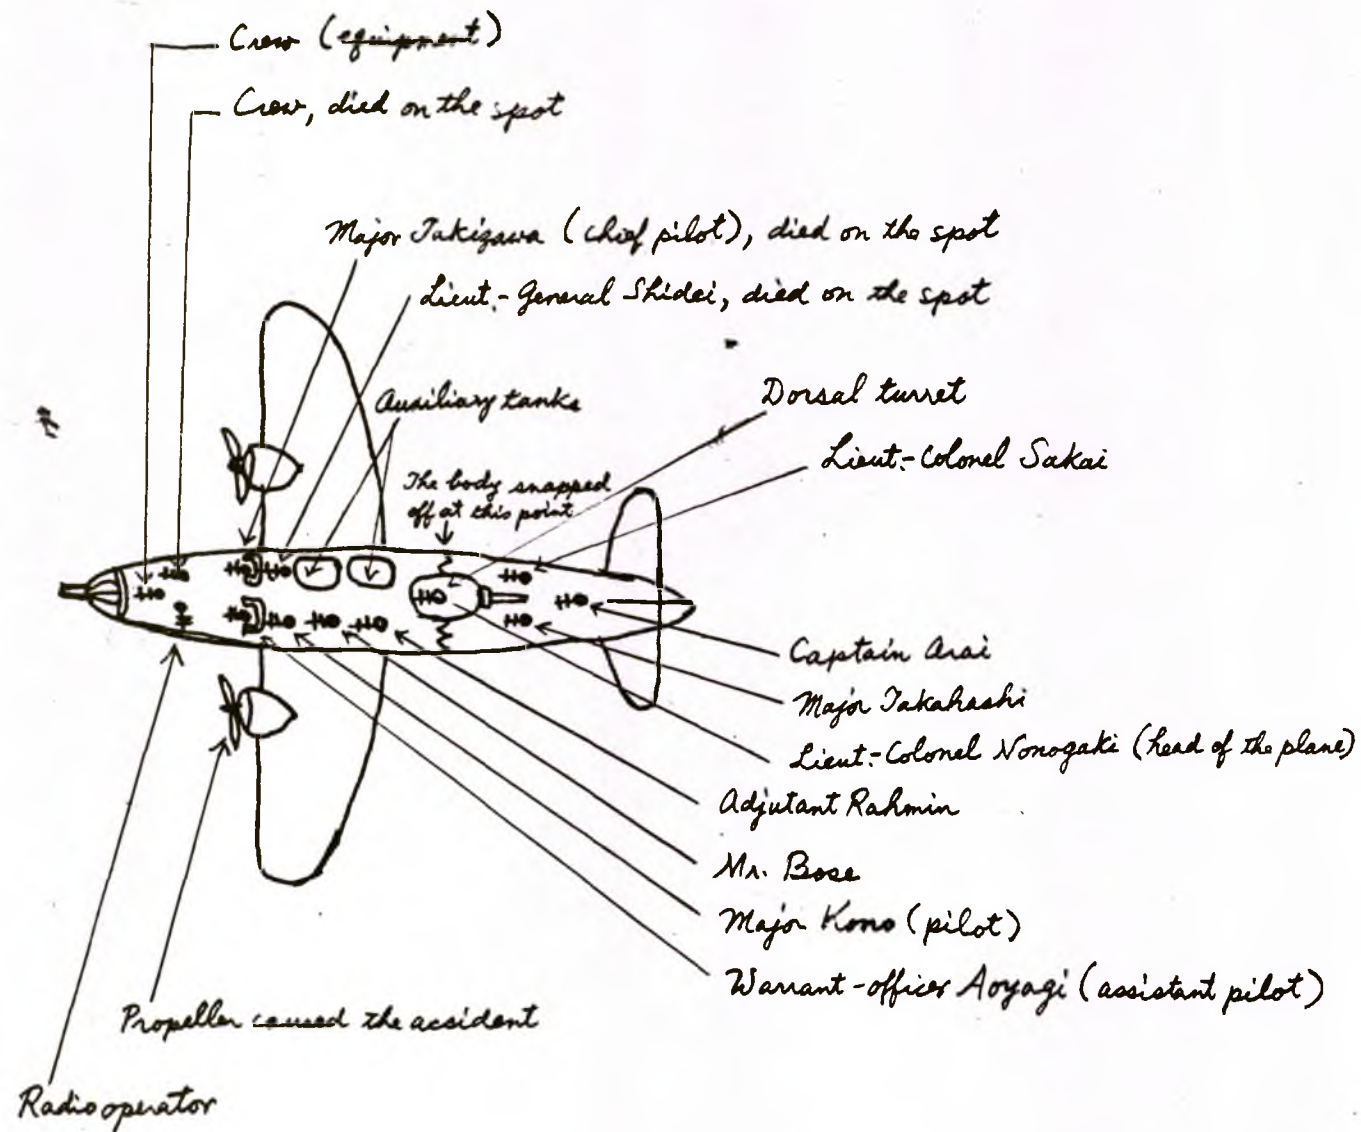 Crew (equipment)
Crew, died on the spot
Major Takizawa (chief pilot), died on the spot
Lieut.-General Shidei, died on the spot
Auxiliary tanks
Dorsal turret
Lieut.-Colonel Sakai
The body snapped
off at this point
Captain Arai
Major Takahashi
Lieut.-Colonel Nonogaki (head of the plane)
Adjutant Rahmin
Mr. Bose
Major Kono (pilot)
Warrant-officer Aoyagi (assistant pilot)
Propeller caused the accident
Radio operator